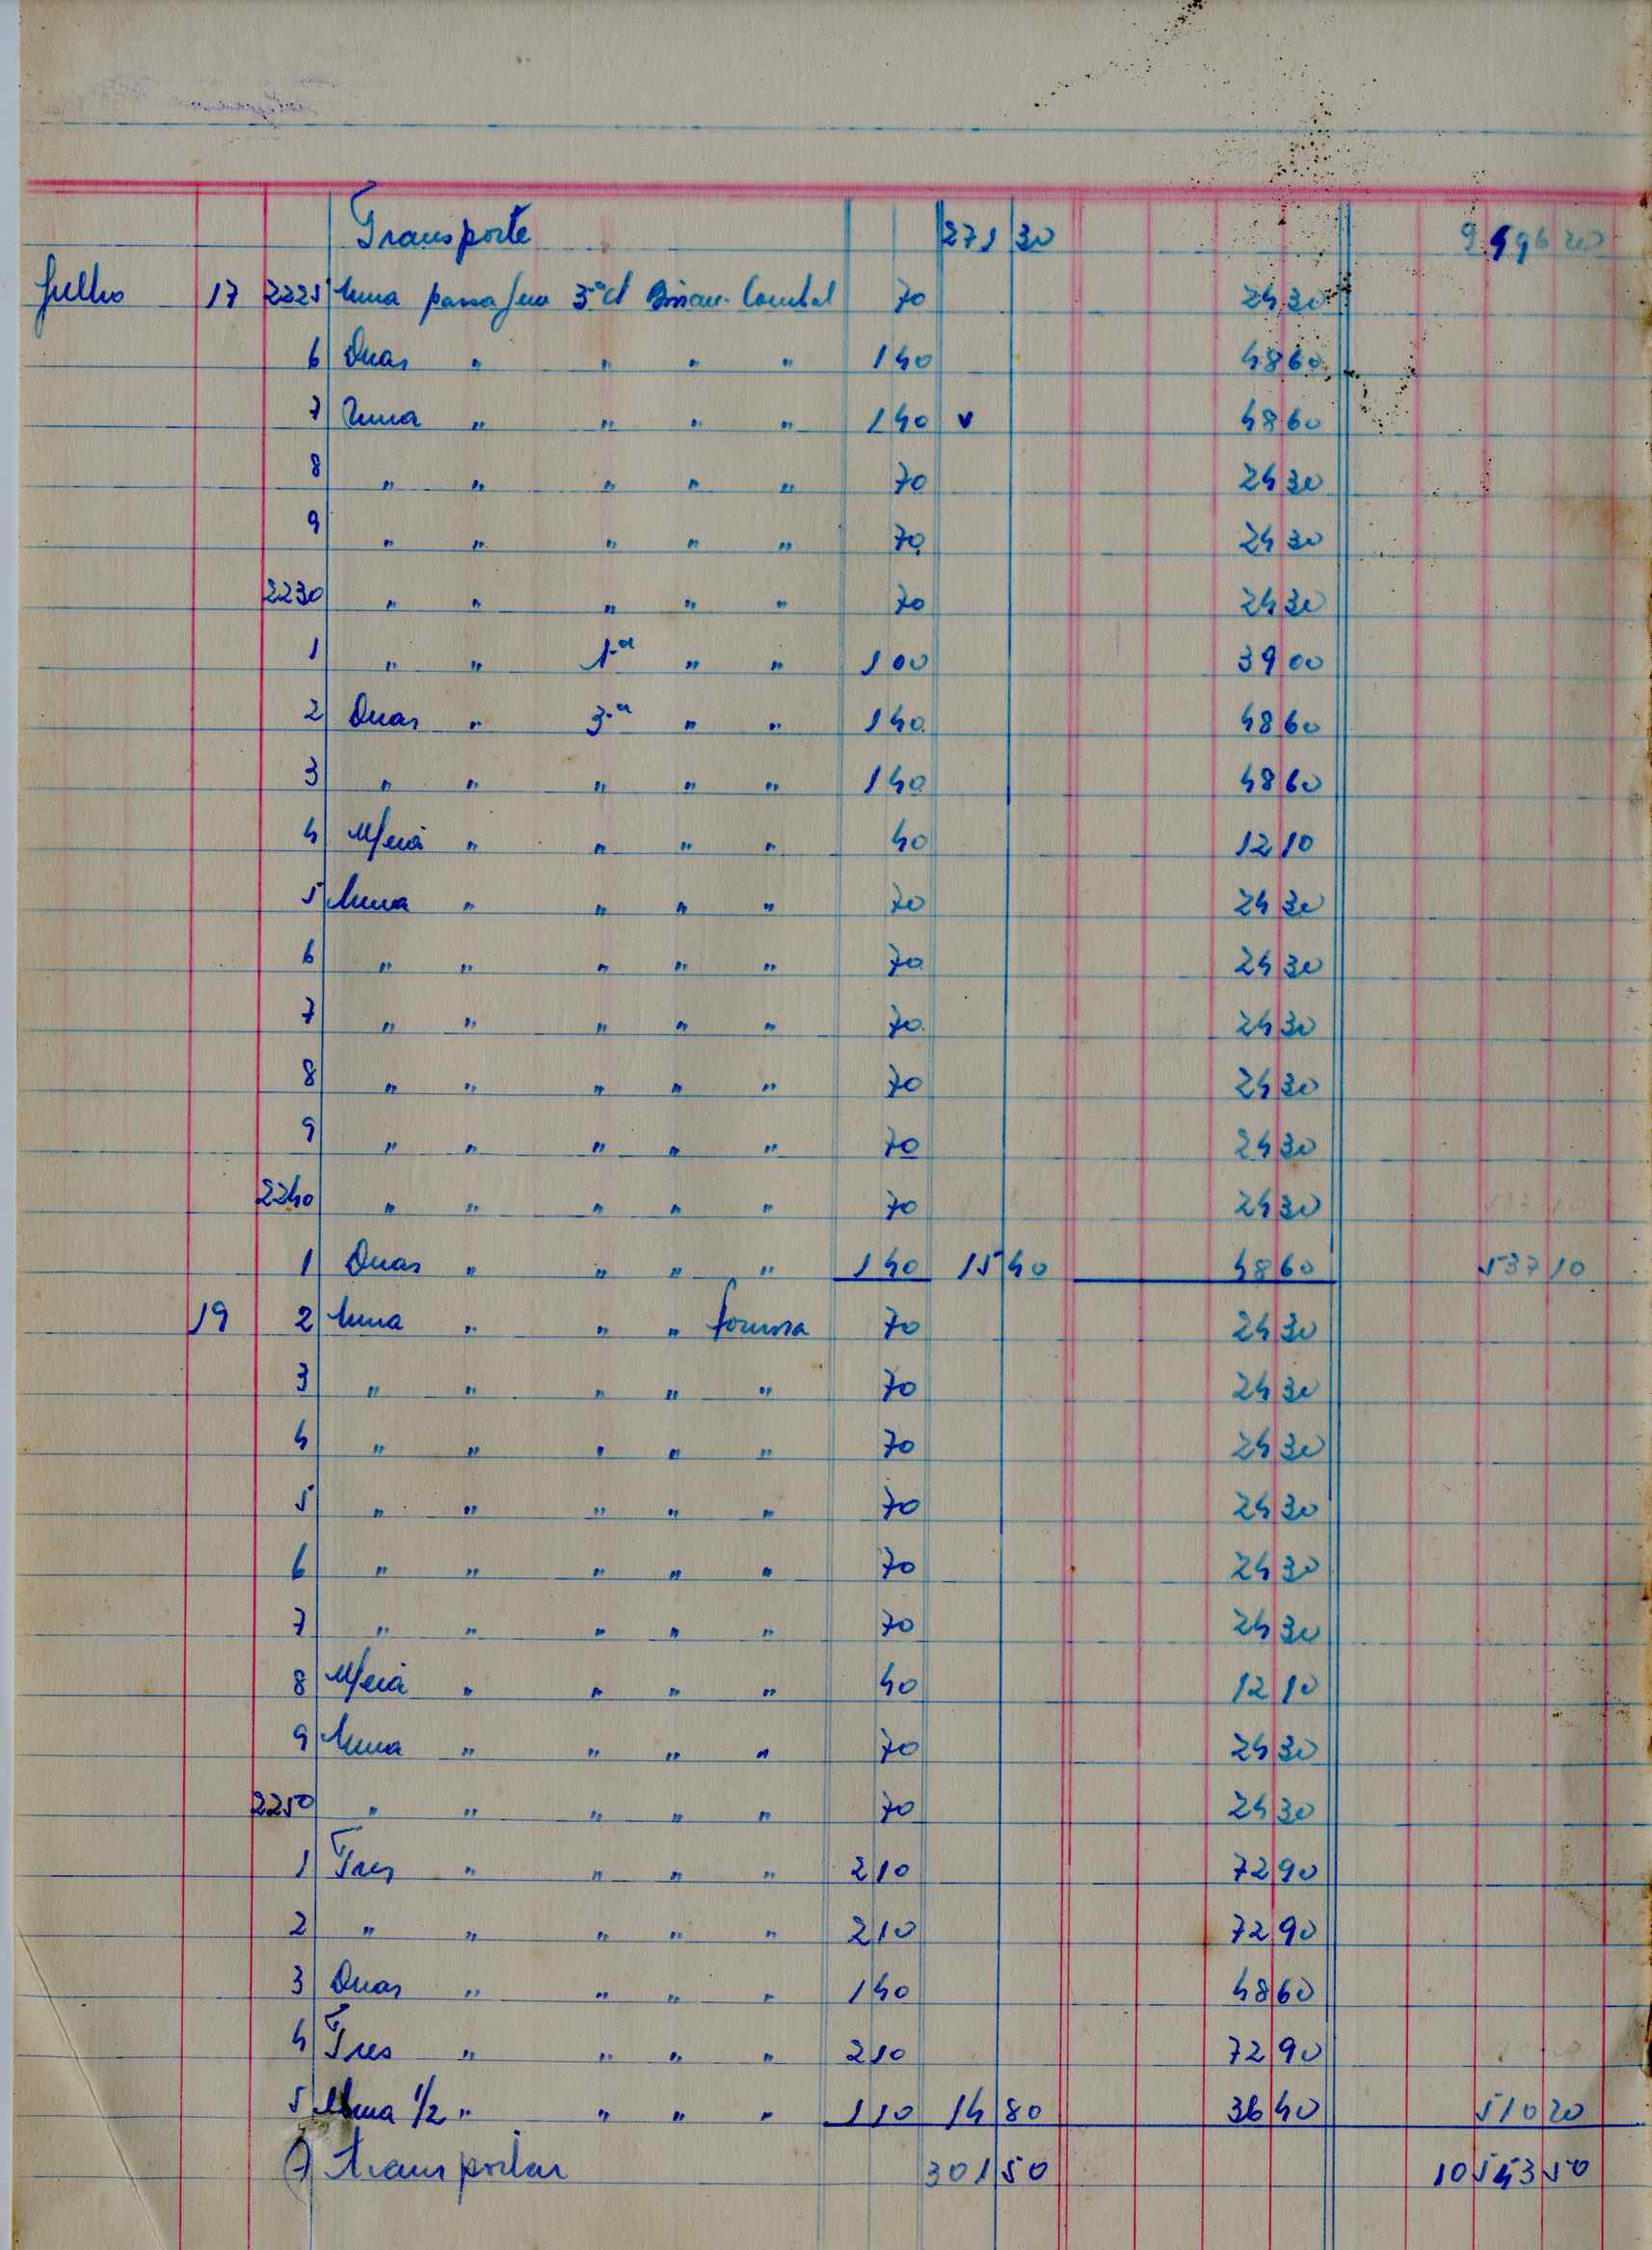 Transporte 271 30 9.496 20
Julho 17 2225 Uma passagem 3ª cl Bissau-Combal 70 24 30
6 Duas " " " " 140 48 60
7 Uma " " " " 140 v 48 60
8 " " " " " 70 24 30
9 " " " " " 70 24 30
2230 " " " " " 70 24 30
1 " " 1ª " " 100 39 00
2 Duas " 3ª " " 140 48 60
3 " " " " " 140 48 60
4 Meia " " " " 40 12 10
5 Uma " " " " 70 24 30
6 " " " " " 70 24 30
7 " " " " " 70 24 30
8 " " " " " 70 24 30
9 " " " " " 70 24 30
2240 " " " " " 70 24 30
1 Duas " " " " 140 15 40 48 60 537 10
19 2 Uma " " " Formosa 70 24 30
3 " " " " " 70 24 30
4 " " " " " 70 24 30
5 " " " " " 70 24 30
6 " " " " " 70 24 30
7 " " " " " 70 24 30
8 Meia " " " " 40 12 10
9 Uma " " " " 70 24 30
2250 " " " " " 70 24 30
1 Tres " " " " 210 72 90
2 " " " " " 210 72 90
3 Duas " " " " 140 48 60
4 Tres " " " " 210 72 90
5 Uma 1/2 " " " " 110 14 80 36 40 510 20
A transportar 301 50 10543 50